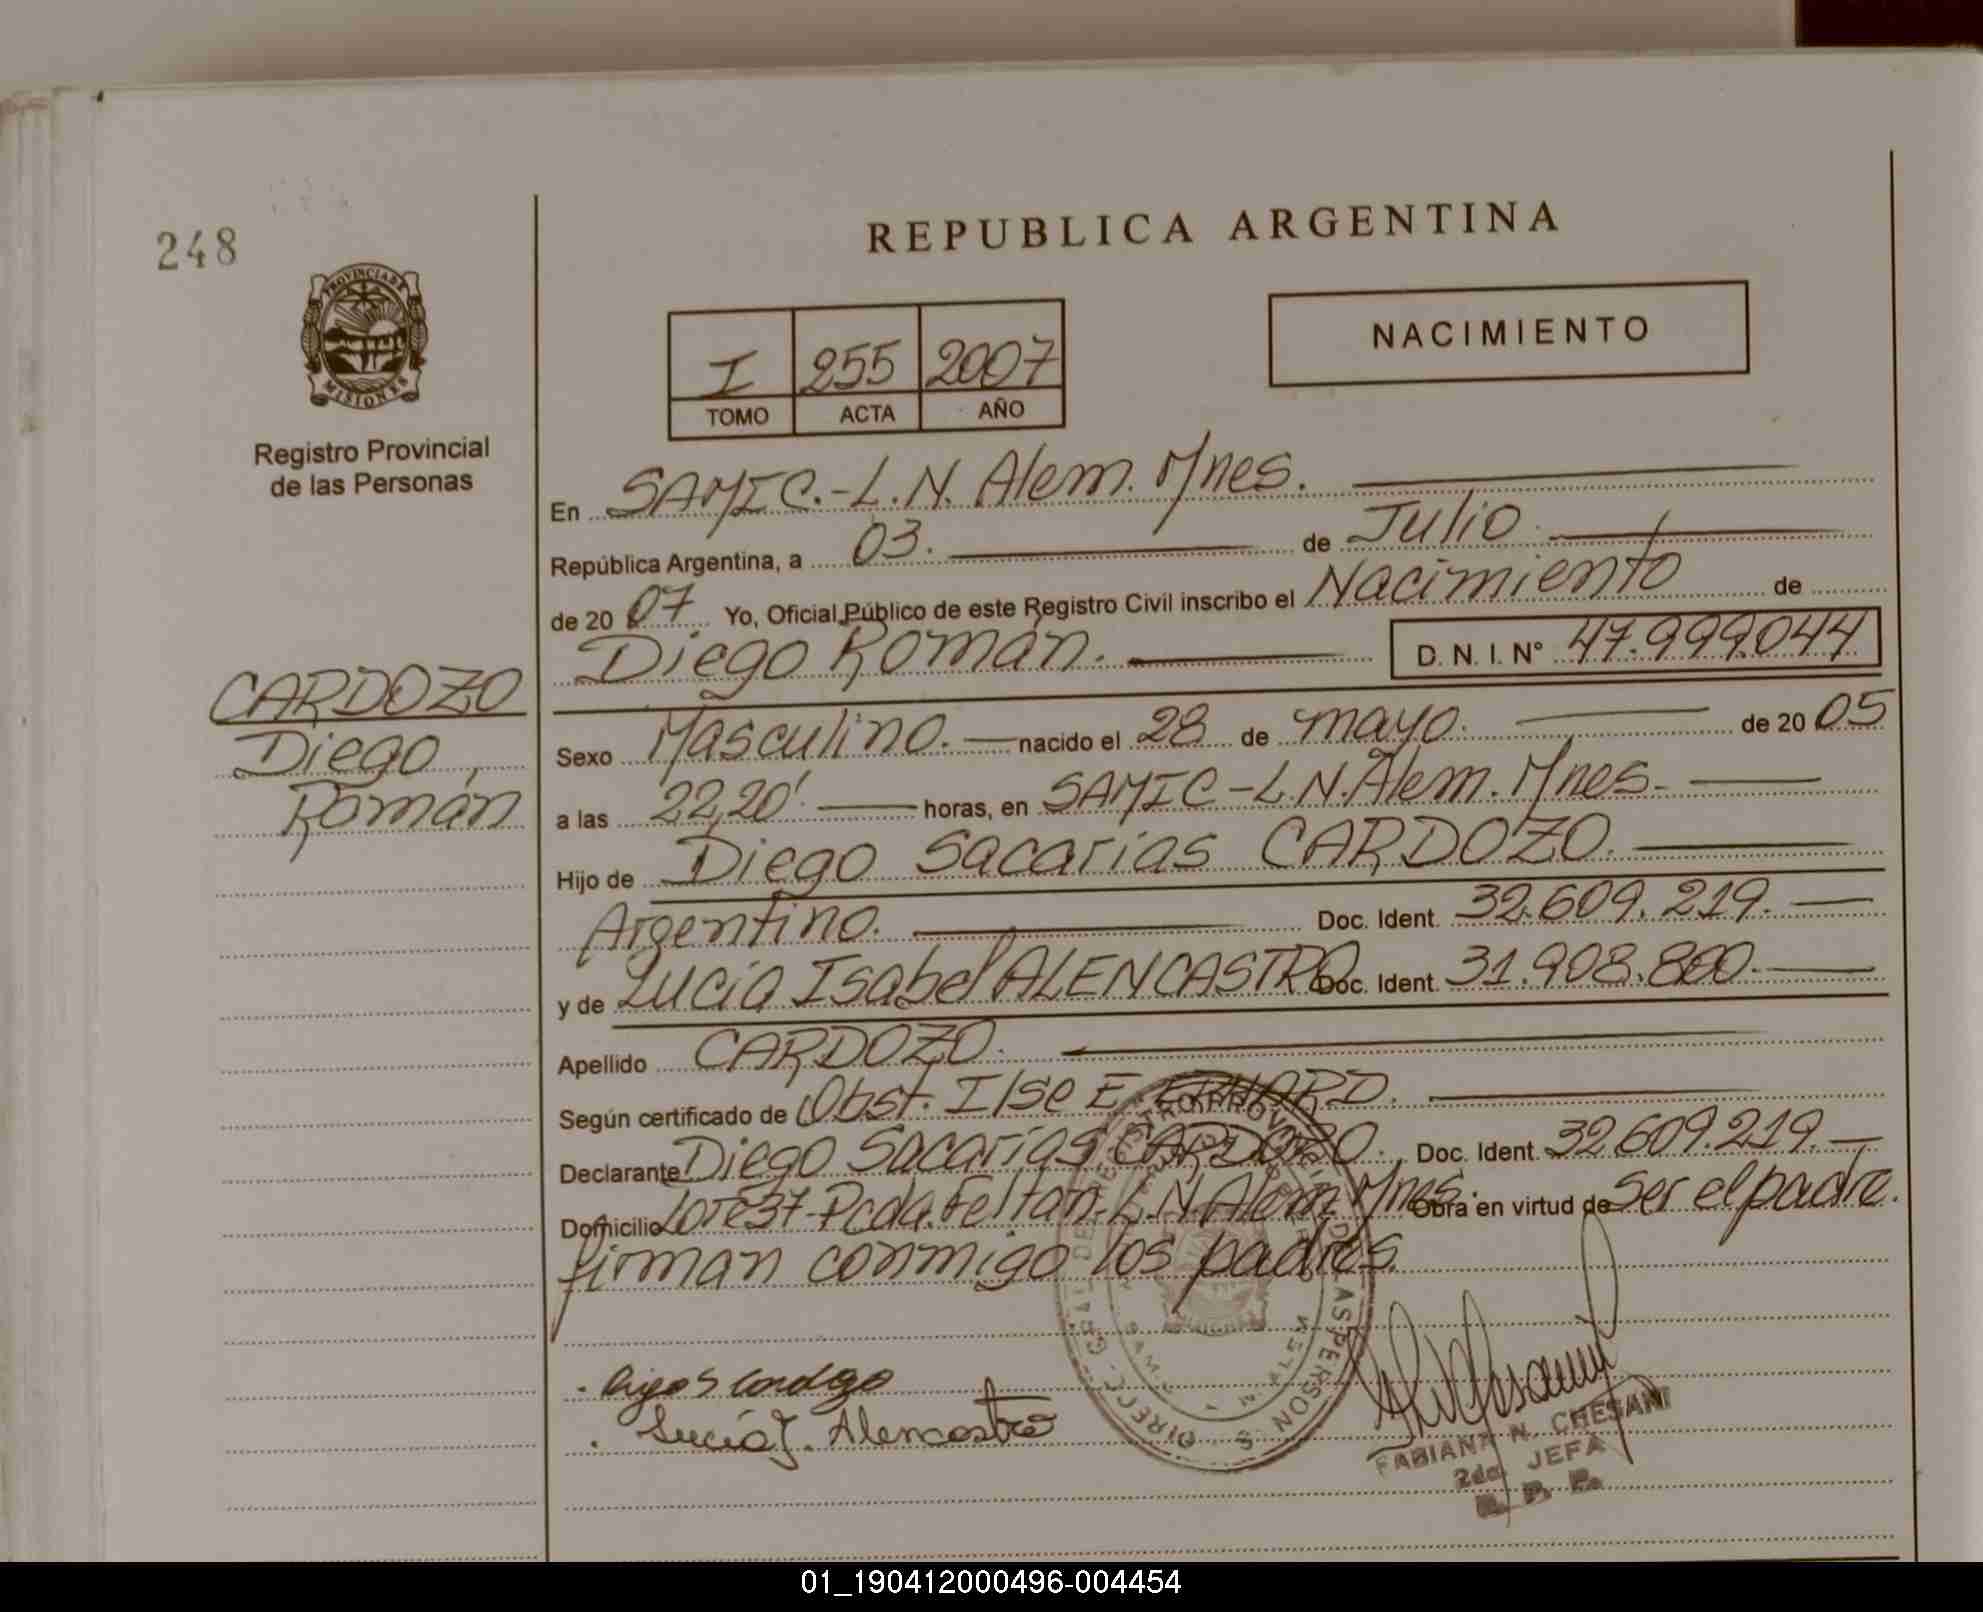 248
PROVINCIA DE
MISIONES
Registro Provincial
de las Personas
CARDOZO
Diego,
Román
REPUBLICA ARGENTINA
I 255 2007
TOMO ACTA AÑO
NACIMIENTO
En SAMIC.-L.N. Alem. Mnes.
República Argentina, a 03. de Julio
de 20 07 Yo, Oficial Público de este Registro Civil inscribo el Nacimiento de
Diego Román. D. N. I. N° 47.999.044
Sexo Masculino. nacido el 28 de mayo. de 20 05
a las 22,20' horas, en SAMIC-L.N. Alem. Mnes.
Hijo de Diego Sacarías CARDOZO.
Argentino. Doc. Ident. 32.609.219.
y de Lucia Isabel ALENCASTRO Doc. Ident. 31.908.800.
Apellido CARDOZO.
Según certificado de Obst. Ilse E. ERHARD.
Declarante Diego Sacarías CARDOZO. Doc. Ident. 32.609.219.
Domicilio Lote 37-Pcda. Feltan-L.N. Alem Mnes. Obra en virtud de Ser el padre.
firman conmigo los padres.
Lucía I. Alencastro
FABIANA N. CHESANI
2da. JEFA
R. P. P.
01_190412000496-004454